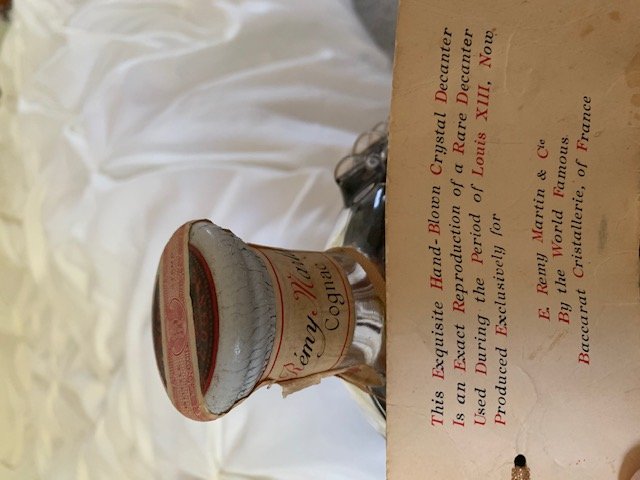 This Exquisite Hand-Blown Crystal Decanter
Is an Exact Reproduction of a Rare Decanter
Used During the Period of Louis XIII, Now
Produced Exclusively for
E. Remy Martin & Cie
By the World Famous
Baccarat Cristallerie, of France
Rémy Mart
Cognac